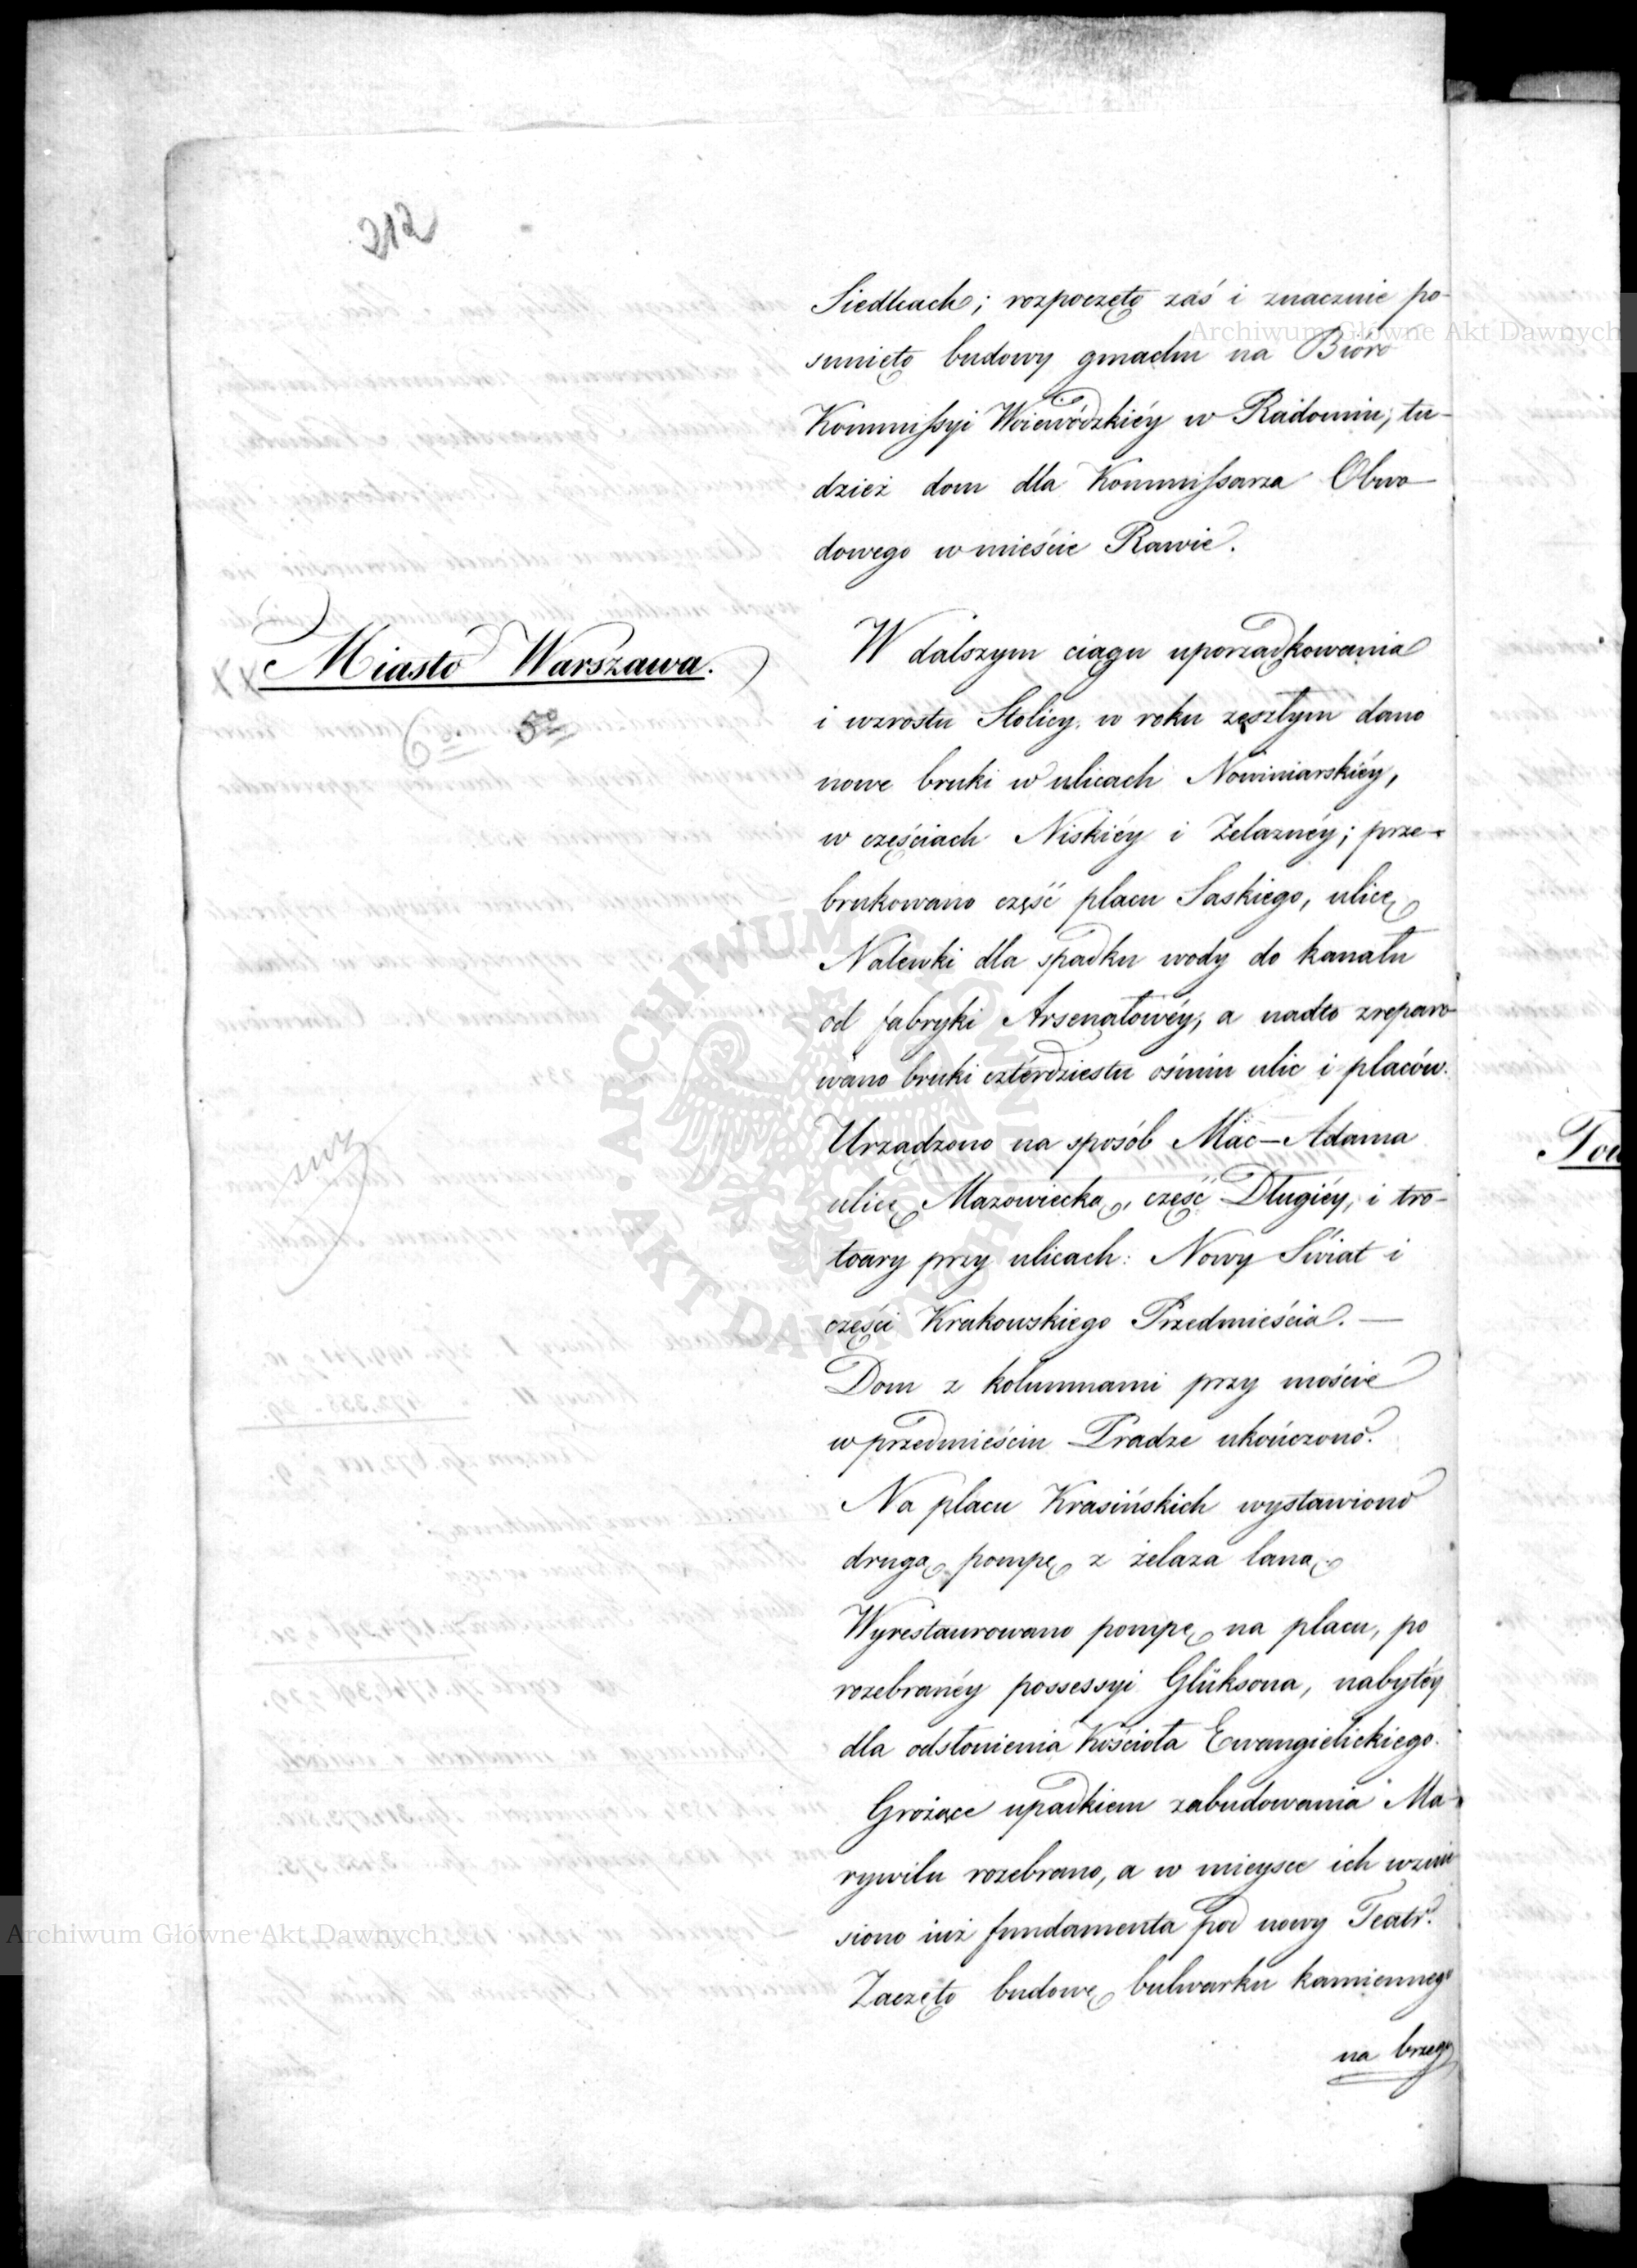 212
Siedlcach; rozpoczęto zaś i znacznie po-
sunięto budowy gmachu na Bióro
Kommissyi Woiewódzkiéy w Radomiu, tu-
dzież dom dla Kommissarza Obwo-
dowego w mieście Rawie.
Miasto Warszawa.
XX
5º
6
W dalszym ciągu uporządkowania
i wzrostu Stolicy, w roku zeszłym dano
nowe bruki w ulicach Nowiniarskiéy,
w częściach Niskiéy i Żelaznéy; prze-
brukowano część placu Saskiego, ulicę
Nalewki dla spadku wody do kanału
od fabryki Arsenałowéy, a nadto zreparo-
wano bruki czterdziestu ośmiu ulic i placów.
Urządzono na sposób Mac-Adama
ulicę Mazowiecką, część Długiéy, i tro-
toary przy ulicach: Nowy Świat i
części Krakowskiego Przedmieścia. —
Dom z kolumnami przy moście
w przedmieściu Pradze ukończono.
Na placu Krasińskich wystawiono
drugą pompę z żelaza laną.
Wyrestaurowano pompę na placu, po
rozebranéy possessyi Glüksona, nabytéy
dla odsłonienia Kościoła Ewangielickiego.
Grożące upadkiem zabudowania Ma-
rywilu rozebrano, a w mieysce ich wznie
siono iuż fundamenta pod nowy Teatr.
Zaczęto budowę bulwarku kamiennego
na brzegu
Tow
Archiwum Główne Akt Dawnych
Archiwum Główne Akt Dawnych
ARCHIWUM GŁÓWNE AKT DAWNYCH